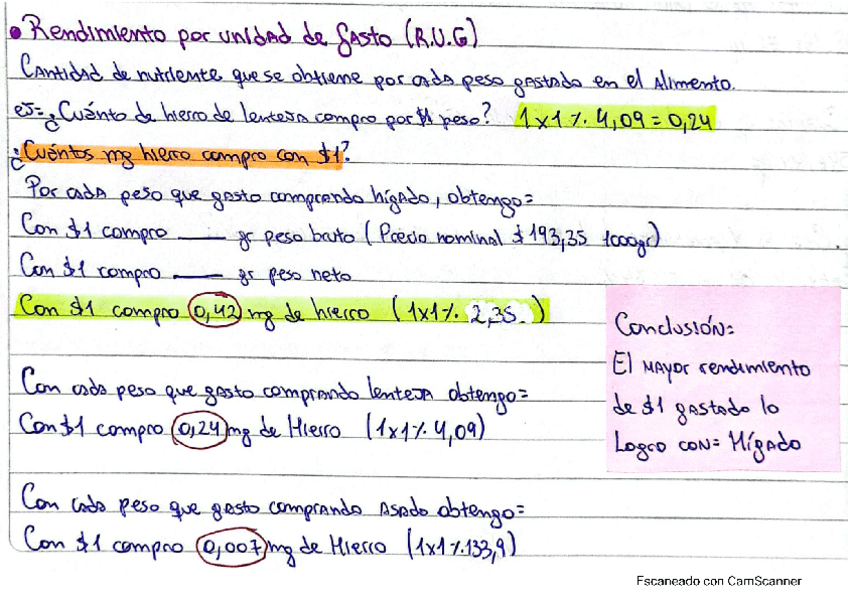 • Rendimiento por unidad de gasto (R.U.G)
Cantidad de nutriente que se obtiene por cada peso gastado en el alimento.
ej= ¿Cuánto de hierro de lenteja compro por $1 peso? 1x1 ÷ 4,09 = 0,24
¿Cuántos mg hierro compro con $1?
Por cada peso que gasto comprando hígado, obtengo=
Con $1 compro ____ gr peso bruto (Precio nominal $193,35 1000gr)
Con $1 compro ____ gr peso neto
Con $1 compro 0,42 mg de hierro (1x1 ÷ 2,35)
Conclusión=
El mayor rendimiento
de $1 gastado lo
Logro con= Hígado
Con cada peso que gasto comprando lenteja obtengo=
Con $1 compro 0,24 mg de Hierro (1x1 ÷ 4,09)
Con cada peso que gasto comprando asado obtengo=
Con $1 compro 0,007 mg de Hierro (1x1 ÷ 133,9)
Escaneado con CamScanner